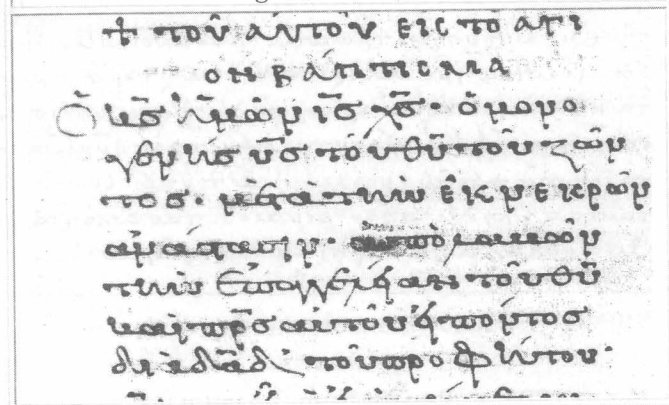 ☩ τοῦ αυτοῦ εις το αγι
ον βάπτισμα
Ὁ κ̅ς̅ ἡμῶν ι̅ς̅ χ̅ς̅· ὁ μονο
γενης υ̅ς̅ τοῦ θ̅υ̅ τοῦ ζῶν
τος· μετὰ τὴν ἐκ νεκρῶν
ανάστασιν· απολαμβών
τὴν ἐπαγγελίαν τοῦ θ̅υ̅
και π̅ρ̅ς̅ αυτοῦ εἰπόντος
διὰ δ̅α̅δ̅ τοῦ προφήτου·